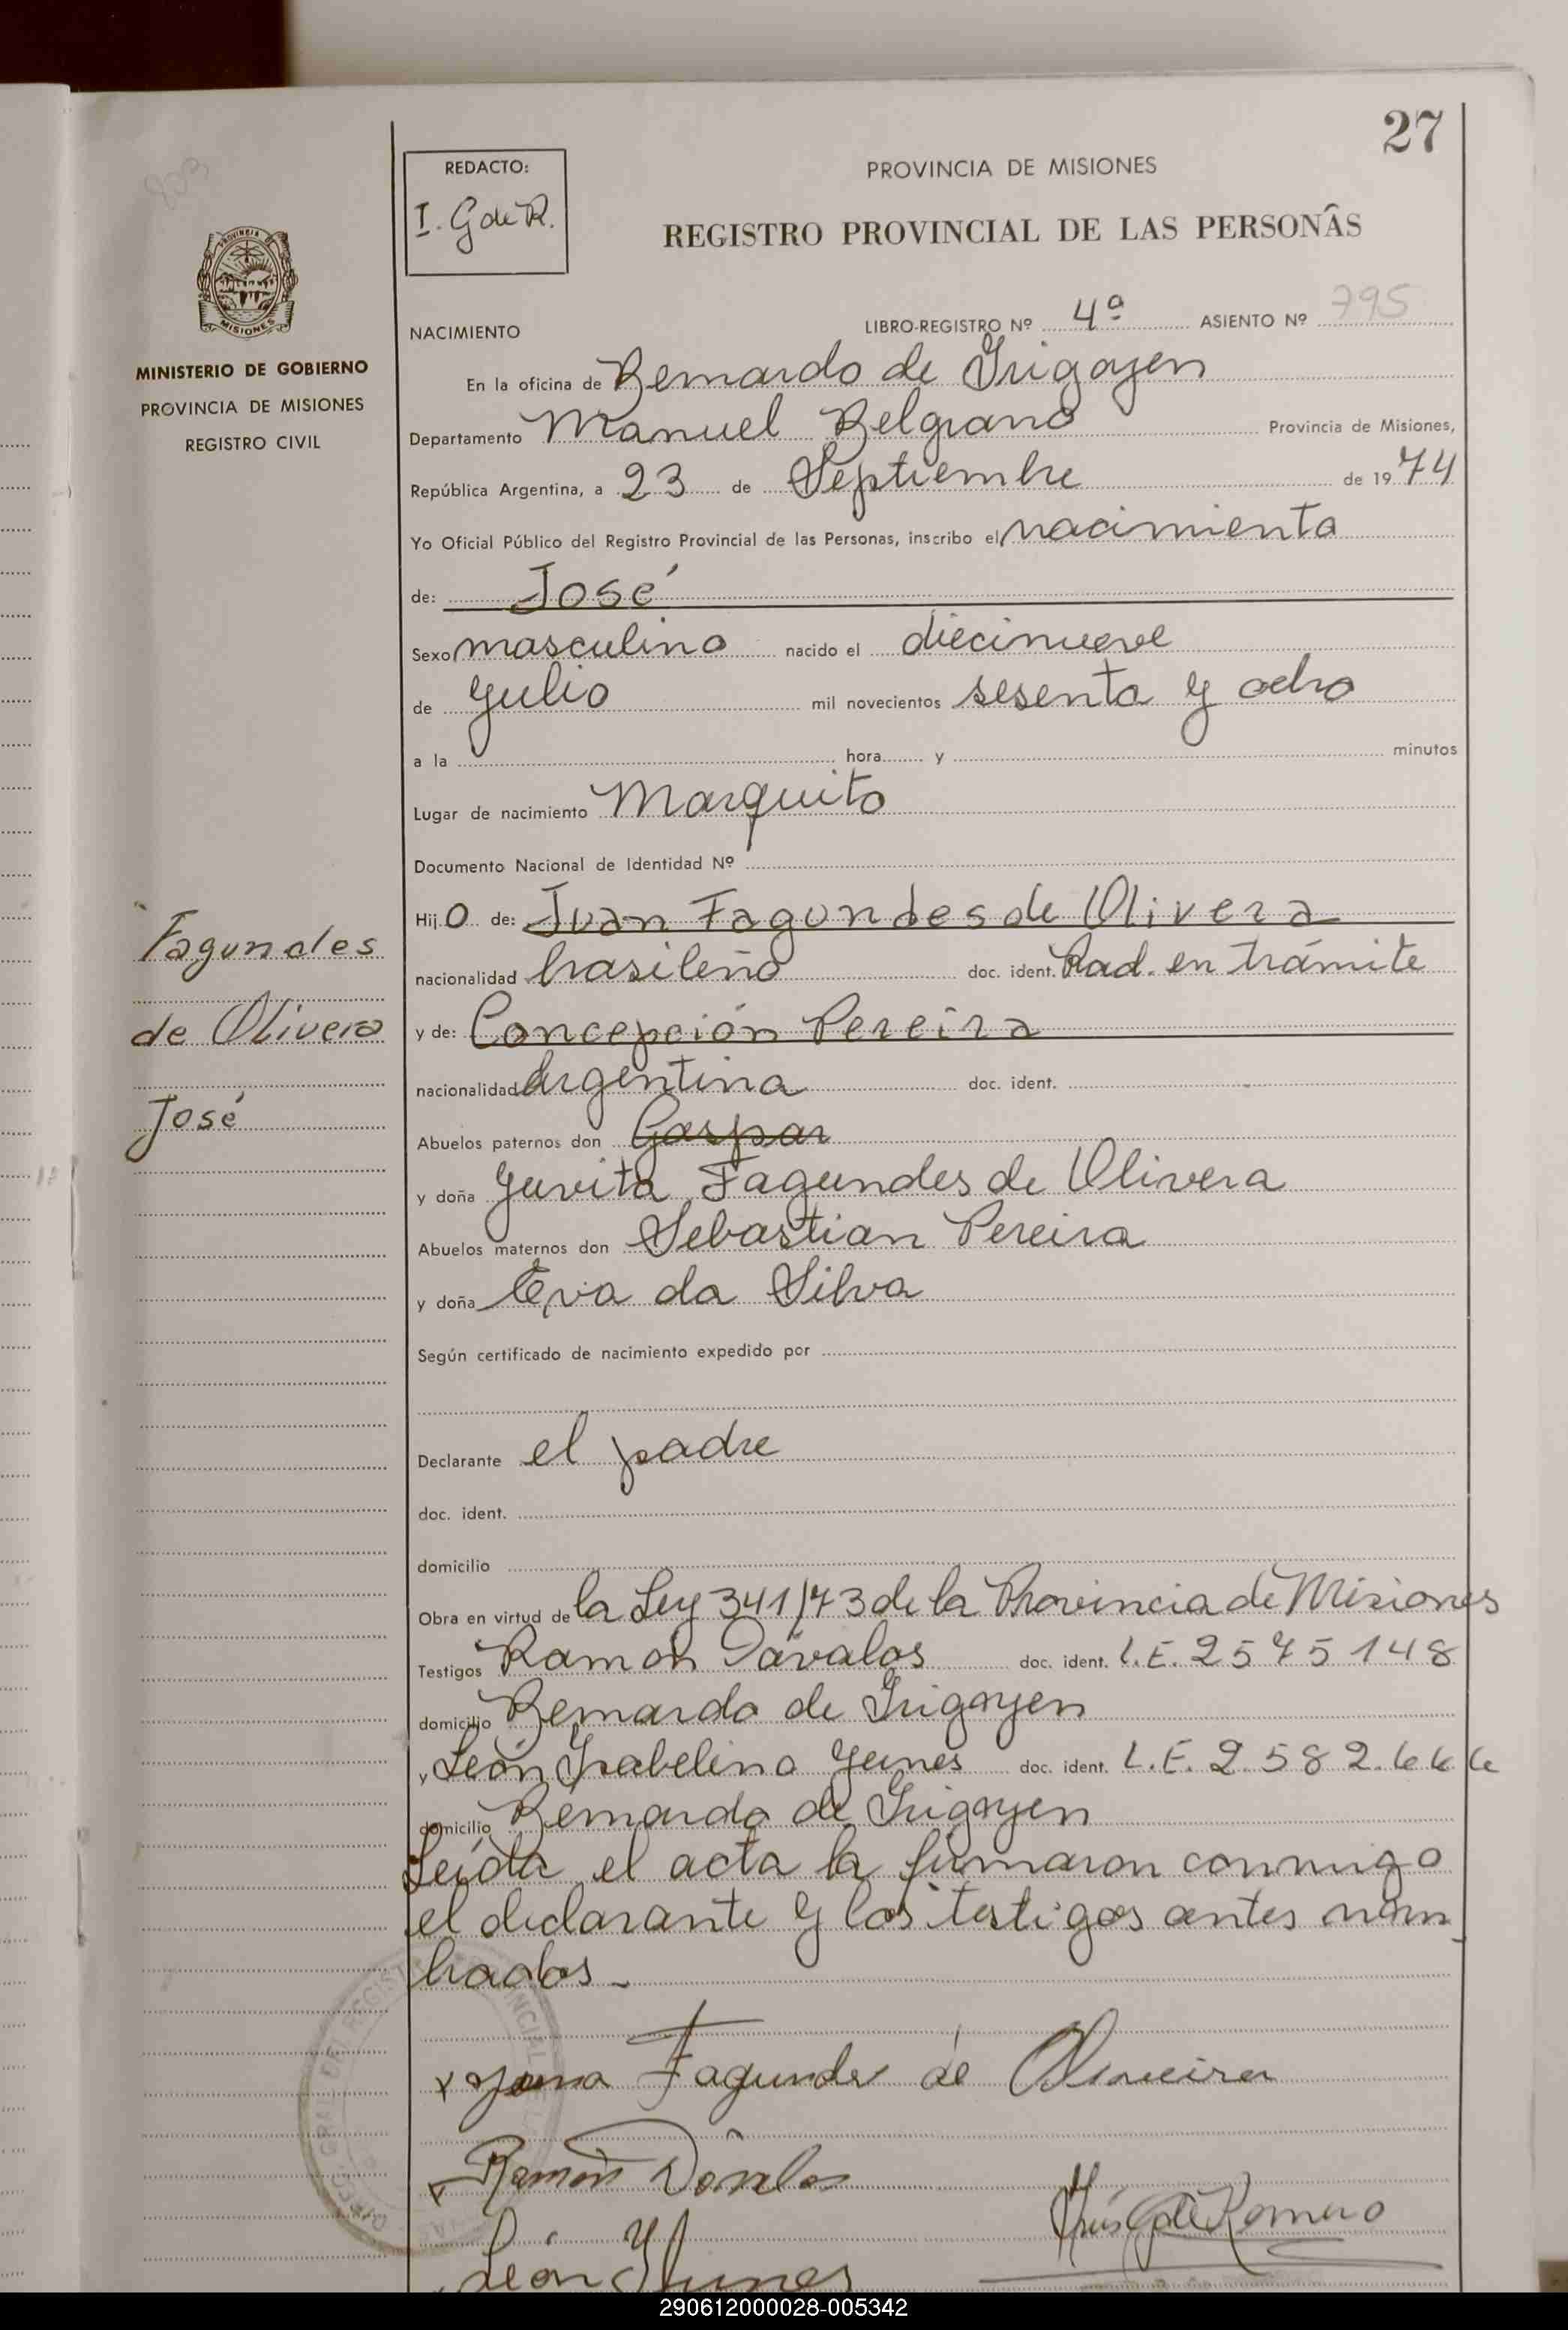 27
REDACTO:
I. G de R.
PROVINCIA DE MISIONES
REGISTRO PROVINCIAL DE LAS PERSONAS
PROVINCIA DE
MISIONES
MINISTERIO DE GOBIERNO
PROVINCIA DE MISIONES
REGISTRO CIVIL
NACIMIENTO LIBRO-REGISTRO Nº 4º ASIENTO Nº 795
En la oficina de Bernardo de Irigoyen
Departamento Manuel Belgrano Provincia de Misiones,
República Argentina, a 23 de Septiembre de 1974
Yo Oficial Público del Registro Provincial de las Personas, inscribo el nacimiento
de: José
Sexo masculino nacido el diecinueve
de Julio mil novecientos sesenta y ocho
a la hora y minutos
Lugar de nacimiento Marquito
Documento Nacional de Identidad Nº
Hijo de: Juan Fagundes de Olivera
nacionalidad brasileño doc. ident. Rad. en trámite
y de: Concepción Pereira
nacionalidad Argentina doc. ident.
Abuelos paternos don Gaspar
y doña Juvita Fagundes de Olivera
Abuelos maternos don Sebastian Pereira
y doña Eva da Silva
Según certificado de nacimiento expedido por
Declarante el padre
doc. ident.
domicilio
Obra en virtud de la Ley 341/73 de la Provincia de Misiones
Testigos Ramón Dávalos doc. ident. L.E. 2575148
domicilio Bernardo de Irigoyen
y León Isabelino Yunes doc. ident. L.E. 2.582.666
domicilio Bernardo de Irigoyen
Leída el acta la firmaron conmigo
el declarante y los testigos antes nom_
brados_
Fagundes
de Olivera
José
Fagundes de Oliveira
Ramón Dávalos
de Romero
León Yunes
290612000028-005342